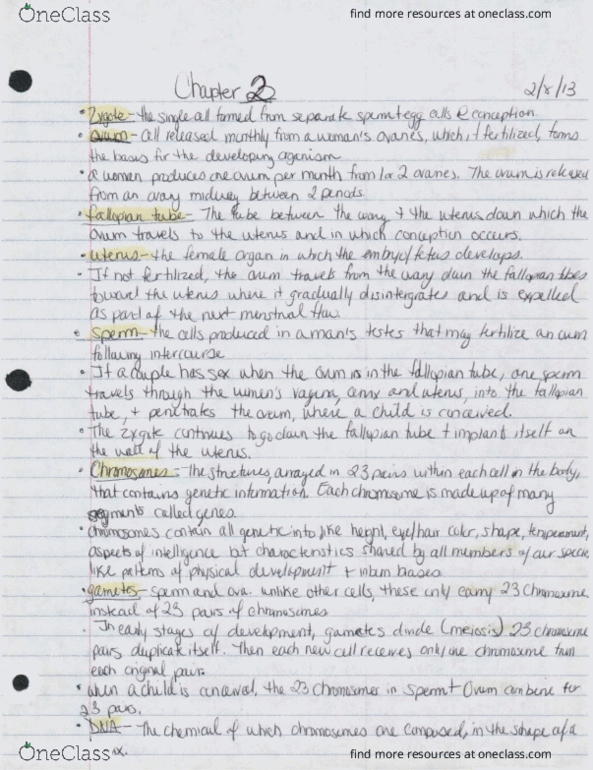 OneClass
find more resources at oneclass.com
Chapter 2
2/8/13
• Zygote - the single cell formed from separate sperm + egg cells @ conception.
• Ovum - Cell released monthly from a woman's ovaries, which, if fertilized, forms
the basis for the developing organism
• A women produces one ovum per month from 1 or 2 ovaries. The ovum is released
from an ovary midway between 2 periods.
• fallopian tube - The tube between the ovary + the uterus down which the
Ovum travels to the uterus and in which conception occurs.
• Uterus - the female organ in which the embryo/fetus develops.
• If not fertilized, the ovum travels from the ovary down the fallopian tubes
toward the uterus where it gradually disintegrates and is expelled
as part of the next menstrual flow.
• Sperm - the cells produced in a man's testes that may fertilize an ovum
following intercourse
• If a couple has sex when the ovum is in the fallopian tube, one sperm
travels through the women's vagina, cervix and uterus, into the fallopian
tube, + penetrates the ovum, where a child is conceived.
• The zygote continues to go down the fallopian tube + implants itself on
the wall of the uterus.
• Chromosomes - the structures, arrayed in 23 pairs within each cell in the body,
that contains genetic information. Each chromosome is made up of many
segments called genes.
• chromosomes contain all genetic info like height, eye/hair color, shape, temperament,
aspects of intelligence but characteristics shared by all members of our species
like patterns of physical development + inborn biases
• gametes - sperm and ova. unlike other cells, these only carry 23 chromosomes
instead of 23 pairs of chromosomes
• In early stages of development, gametes divide (meiosis) 23 chromosome
pairs duplicate itself. Then each new cell receives only one chromosome from
each original pair.
• when a child is conceived, the 23 chromosomes in sperm + Ovum combine for
23 pairs.
• DNA - The chemical of which chromosomes are composed, in the shape of a
ix.
OneClass
find more resources at oneclass.com